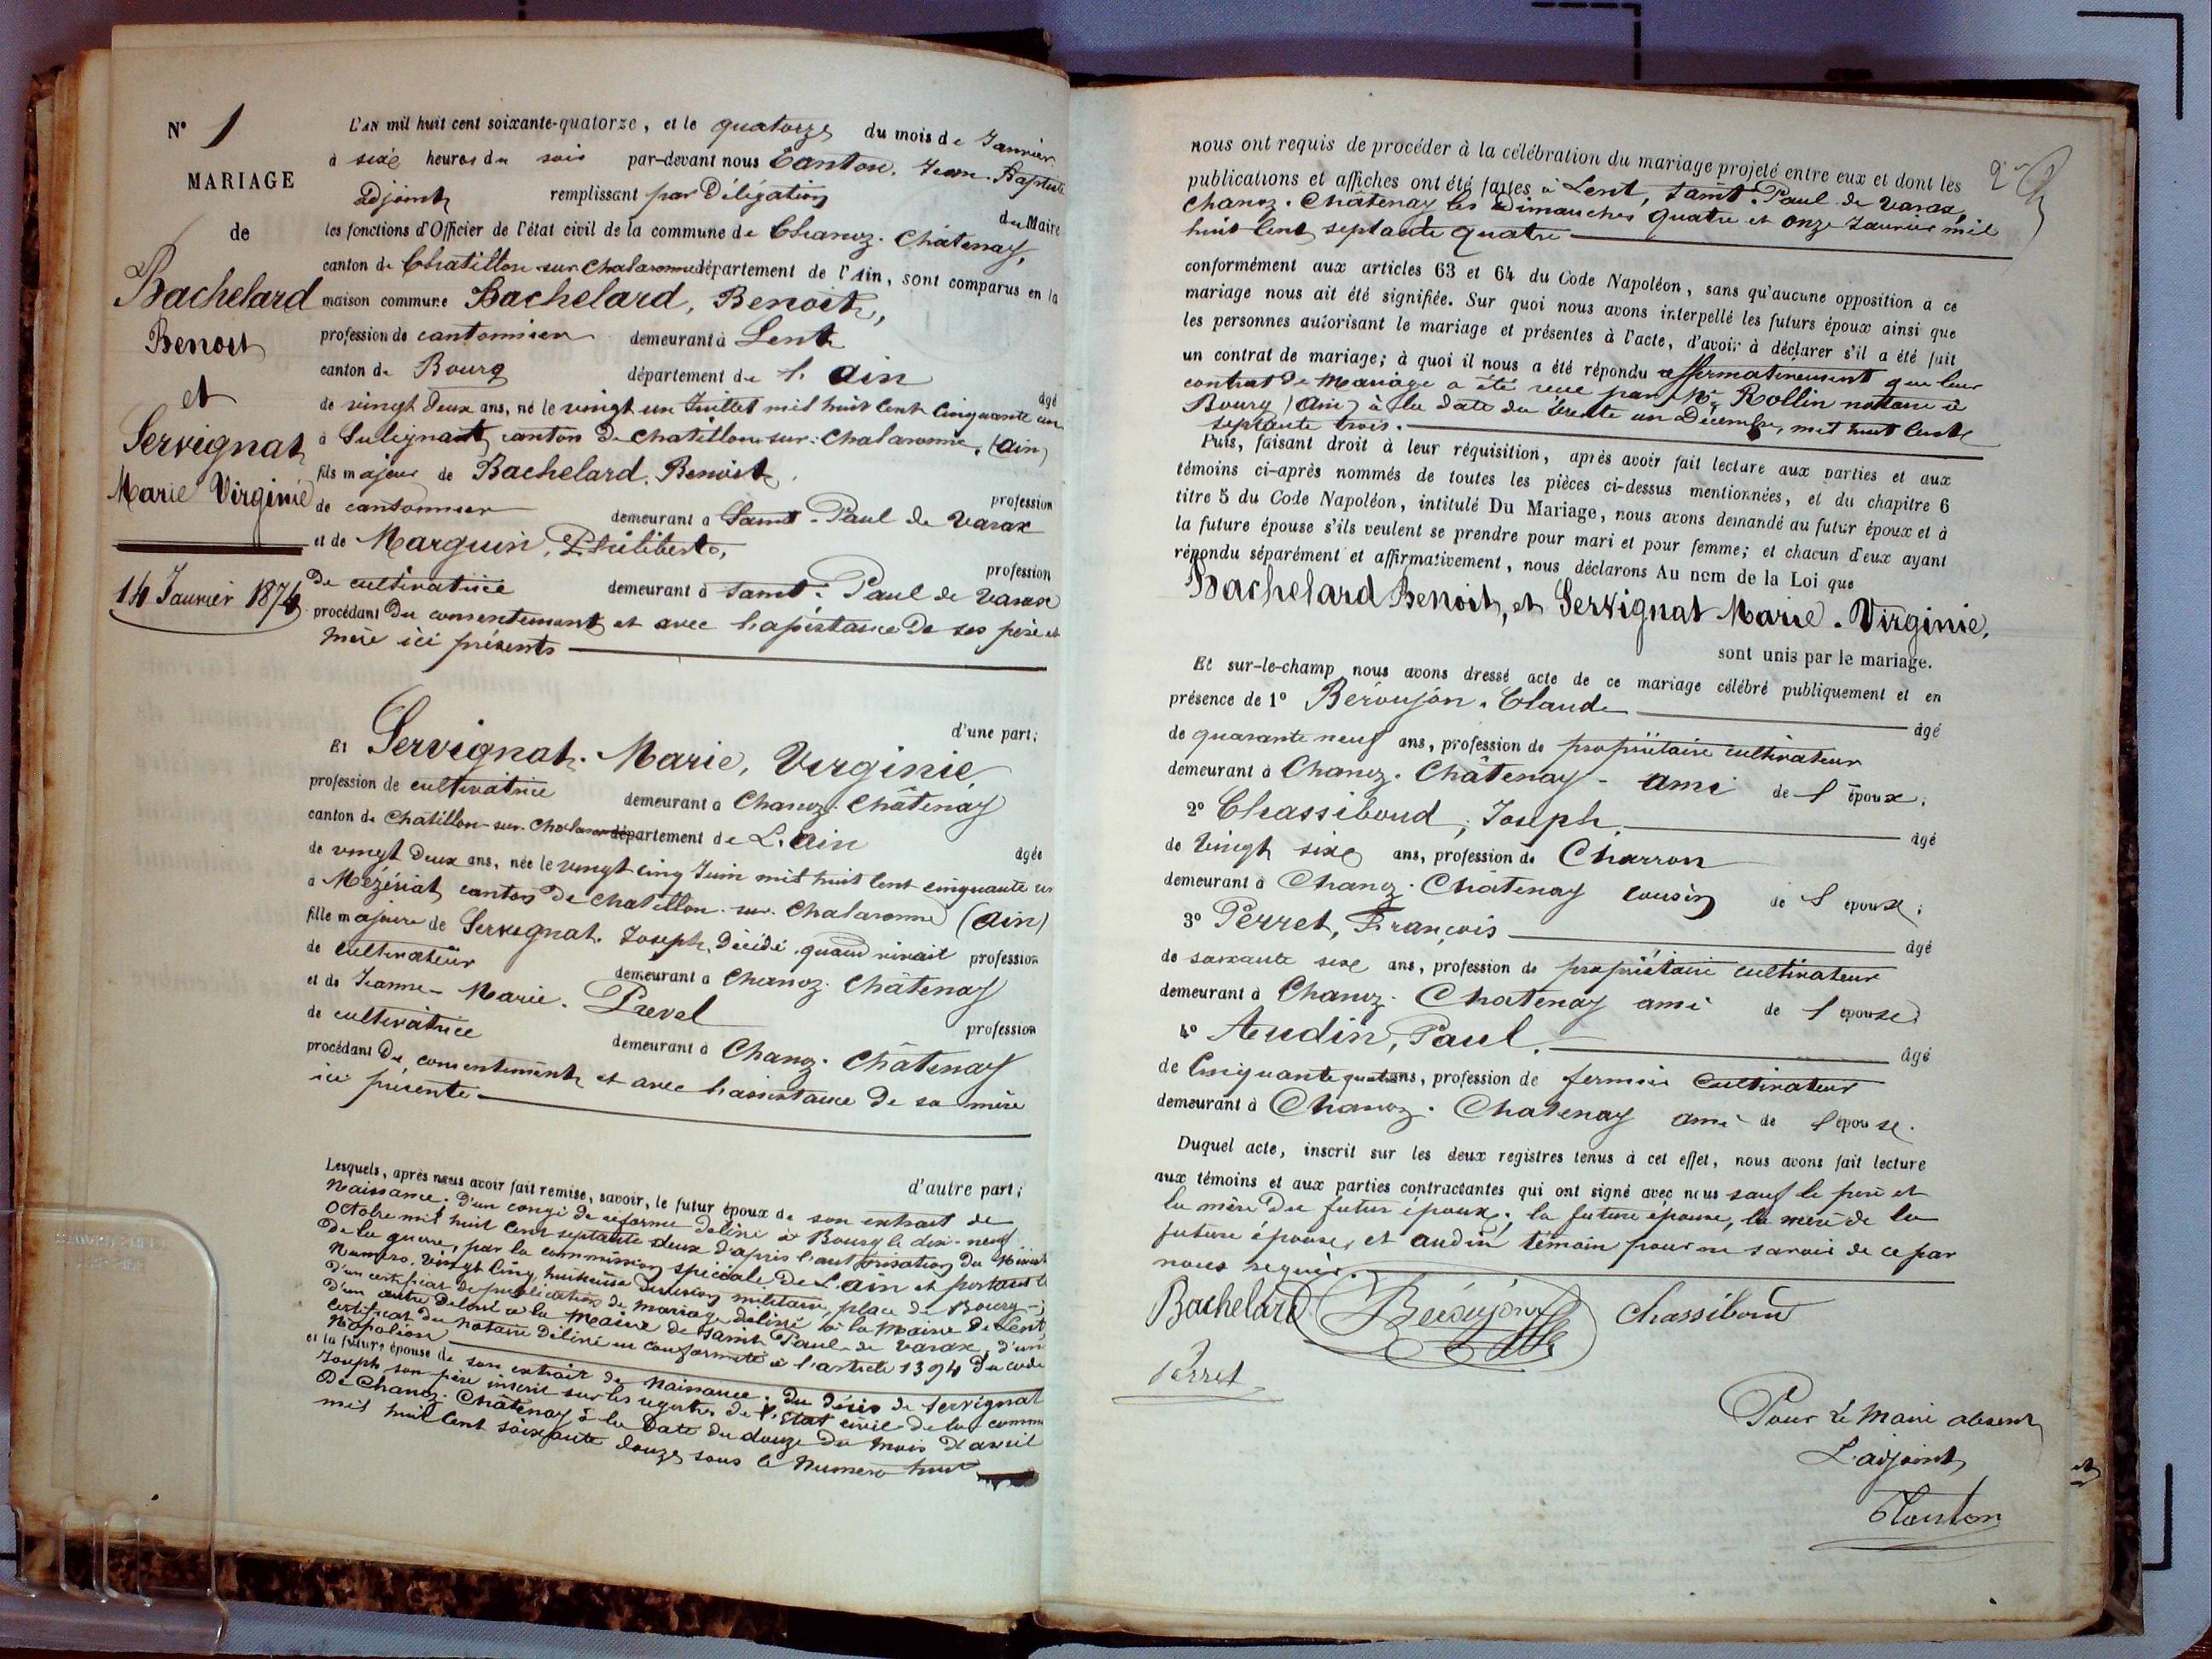 N° 1
MARIAGE
de
Bachelard
Benoit
et
Servignat
Marie Virginie
14 Janvier 1874
L'AN mil huit cent soixante-quatorze, et le quatorze du mois de Janvier
à six heures du soir par-devant nous Canton. Jean-Baptiste
adjoint remplissant par Délégation du Maire
les fonctions d'Officier de l'état civil de la commune de Chanoz-Châtenay,
canton de Chatillon-sur-Chalaronne département de l'Ain, sont comparus en la
maison commune Bachelard, Benoit,
profession de cantonnier demeurant à Lent
canton de Bourg département de l'Ain âgé
de vingt Deux ans, né le vingt un Juillet mil huit Cent Cinquante un
à Sulignat canton de Chatillon-sur-Chalaronne, (Ain)
fils majeur de Bachelard, Benoit profession
de cantonnier demeurant à Saint-Paul de Varax
et de Marguin, Philiberte, profession
De cultivatrice demeurant à Saint-Paul de Varax
procédant Du consentement et avec l'assistance De ses père et
mère ici présents
d'une part;
Et Servignat. Marie, Virginie
profession de cultivatrice demeurant à Chanoz-Châtenay
canton de Chatillon-sur-Chalaronne département de L'Ain âgée
de vingt Deux ans, née le vingt cinq Juin mil huit Cent cinquante un
à Mézériat canton de Chatillon-sur-Chalaronne (Ain)
fille majeure de Servignat. Joseph, Décédé quand vivait profession
de Cultivateur demeurant à Chanoz-Châtenay
et de Jeanne-Marie. Prevel profession
de cultivatrice demeurant à Chanoz-Châtenay
procédant Du consentement et avec l'assistance de sa mère
ici présente
d'autre part;
Lesquels, après nous avoir fait remise, savoir, le futur époux de son extrait de
Naissance. D'un congé de réforme Délivré à Bourg le dix-neuf
Octobre mil huit Cent septante deux d'après l'autorisation du Ministre
De la guerre, par la commission spéciale De L'Ain et portant le
Numéro, vingt Cinq, huitième Division militaire, place de Bourg-;
D'un certificat de publication de mariage délivré à la Mairie De Lent,
D'un autre Délivré à la Mairie de Saint Paul-de Varax, d'un
Certificat du Notaire Délivré en conformité à l'article 1394 Du code
Napoléon
et la future épouse de son extrait de Naissance. Du Décès de Servignat
Joseph son père inscrit sur les registres de l'Etat civil de la commune
De Chanoz-Châtenay à la Date du douze Du Mois D'avril
mil huit Cent soixante douze sous le Numero huit
2e
nous ont requis de procéder à la célébration du mariage projeté entre eux et dont les
publications et affiches ont été faites à Lent, Saint-Paul de Varax,
Chanoz-Châtenay les Dimanches Quatre et Onze Janvier mil
huit Cent septante quatre
conformément aux articles 63 et 64 du Code Napoléon, sans qu'aucune opposition à ce
mariage nous ait été signifiée. Sur quoi nous avons interpellé les futurs époux ainsi que
les personnes autorisant le mariage et présentes à l'acte, d'avoir à déclarer s'il a été fait
un contrat de mariage; à quoi il nous a été répondu affirmativement que leur
contrat de Mariage a été reçu par Me Rollin notaire à
Bourg (Ain) à la date du trente un Décembre, mil huit Cent
septante trois.
Puis, faisant droit à leur réquisition, après avoir fait lecture aux parties et aux
témoins ci-après nommés de toutes les pièces ci-dessus mentionnées, et du chapitre 6
titre 5 du Code Napoléon, intitulé Du Mariage, nous avons demandé au futur époux et à
la future épouse s'ils veulent se prendre pour mari et pour femme; et chacun d'eux ayant
répondu séparément et affirmativement, nous déclarons Au nom de la Loi que
Bachelard Benoit, et Servignat Marie-Virginie,
sont unis par le mariage.
Et sur-le-champ nous avons dressé acte de ce mariage célébré publiquement et en
présence de 1° Béroujon. Claude âgé
de quarante neuf ans, profession de propriétaire cultivateur
demeurant à Chanoz-Châtenay - ami de l'époux;
2° Chassiboud, Joseph. âgé
de Vingt six ans, profession de Charron
demeurant à Chanoz-Châtenay cousin de l'epouse;
3° Perret, François âgé
de soixante six ans, profession de propriétaire cultivateur
demeurant à Chanoz-Chatenay ami de l'epouse
4° Audin, Paul. âgé
de Cinquante quatre ans, profession de fermier Cultivateur
demeurant à Chanoz-Chatenay ami de l'épouse.
Duquel acte, inscrit sur les deux registres tenus à cet effet, nous avons fait lecture
aux témoins et aux parties contractantes qui ont signé avec nous sauf le père et
la mère Du futur époux; la future épouse, la mère de la
future épouse, et Audin témoin pour ne savoir de ce par
nous requis.
Bachelard Béroujon Chassiboud
Perret
Pour Le Maire absent
L'adjoint
Canton